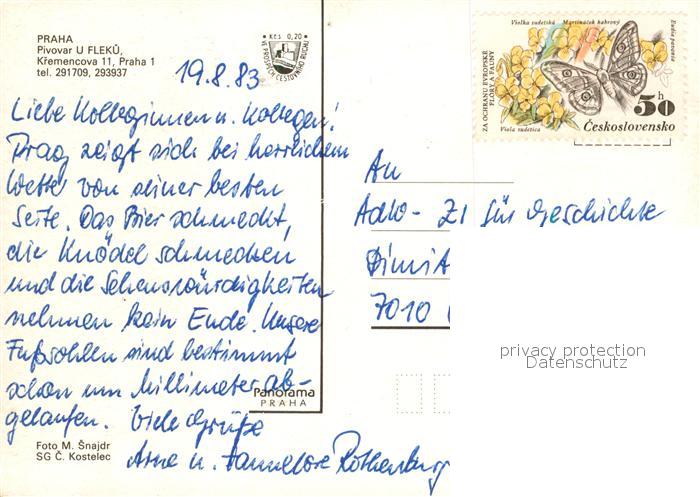 PRAHA
Pivovar U FLEKŮ,
Křemencova 11, Praha 1
tel. 291709, 293937
Kčs 0,20
VE PROSPĚCH CESTOVNÍHO RUCHU
19.8.83
Liebe Kolleginnen u. Kollegen!
Prag zeigt sich bei herrlichem
Wetter von seiner besten
Seite. Das Bier schmeckt,
die Knödel schmecken
und die Sehenswürdigkeiten
nehmen kein Ende. Unsere
Fußsohlen sind bestimmt
schon um Millimeter ab-
gelaufen. Viele Grüße
Arne u. Hannelore Rothenburg
Panorama
PRAHA
Foto M. Šnajdr
SG Č. Kostelec
Violka sudetská Martináček habrový
Viola sudetica
ZA OCHRANU EVROPSKÉ
FLÓRY A FAUNY
50 h
Československo
An
AdW - ZI für Geschichte
Dimit
7010
privacy protection
Datenschutz